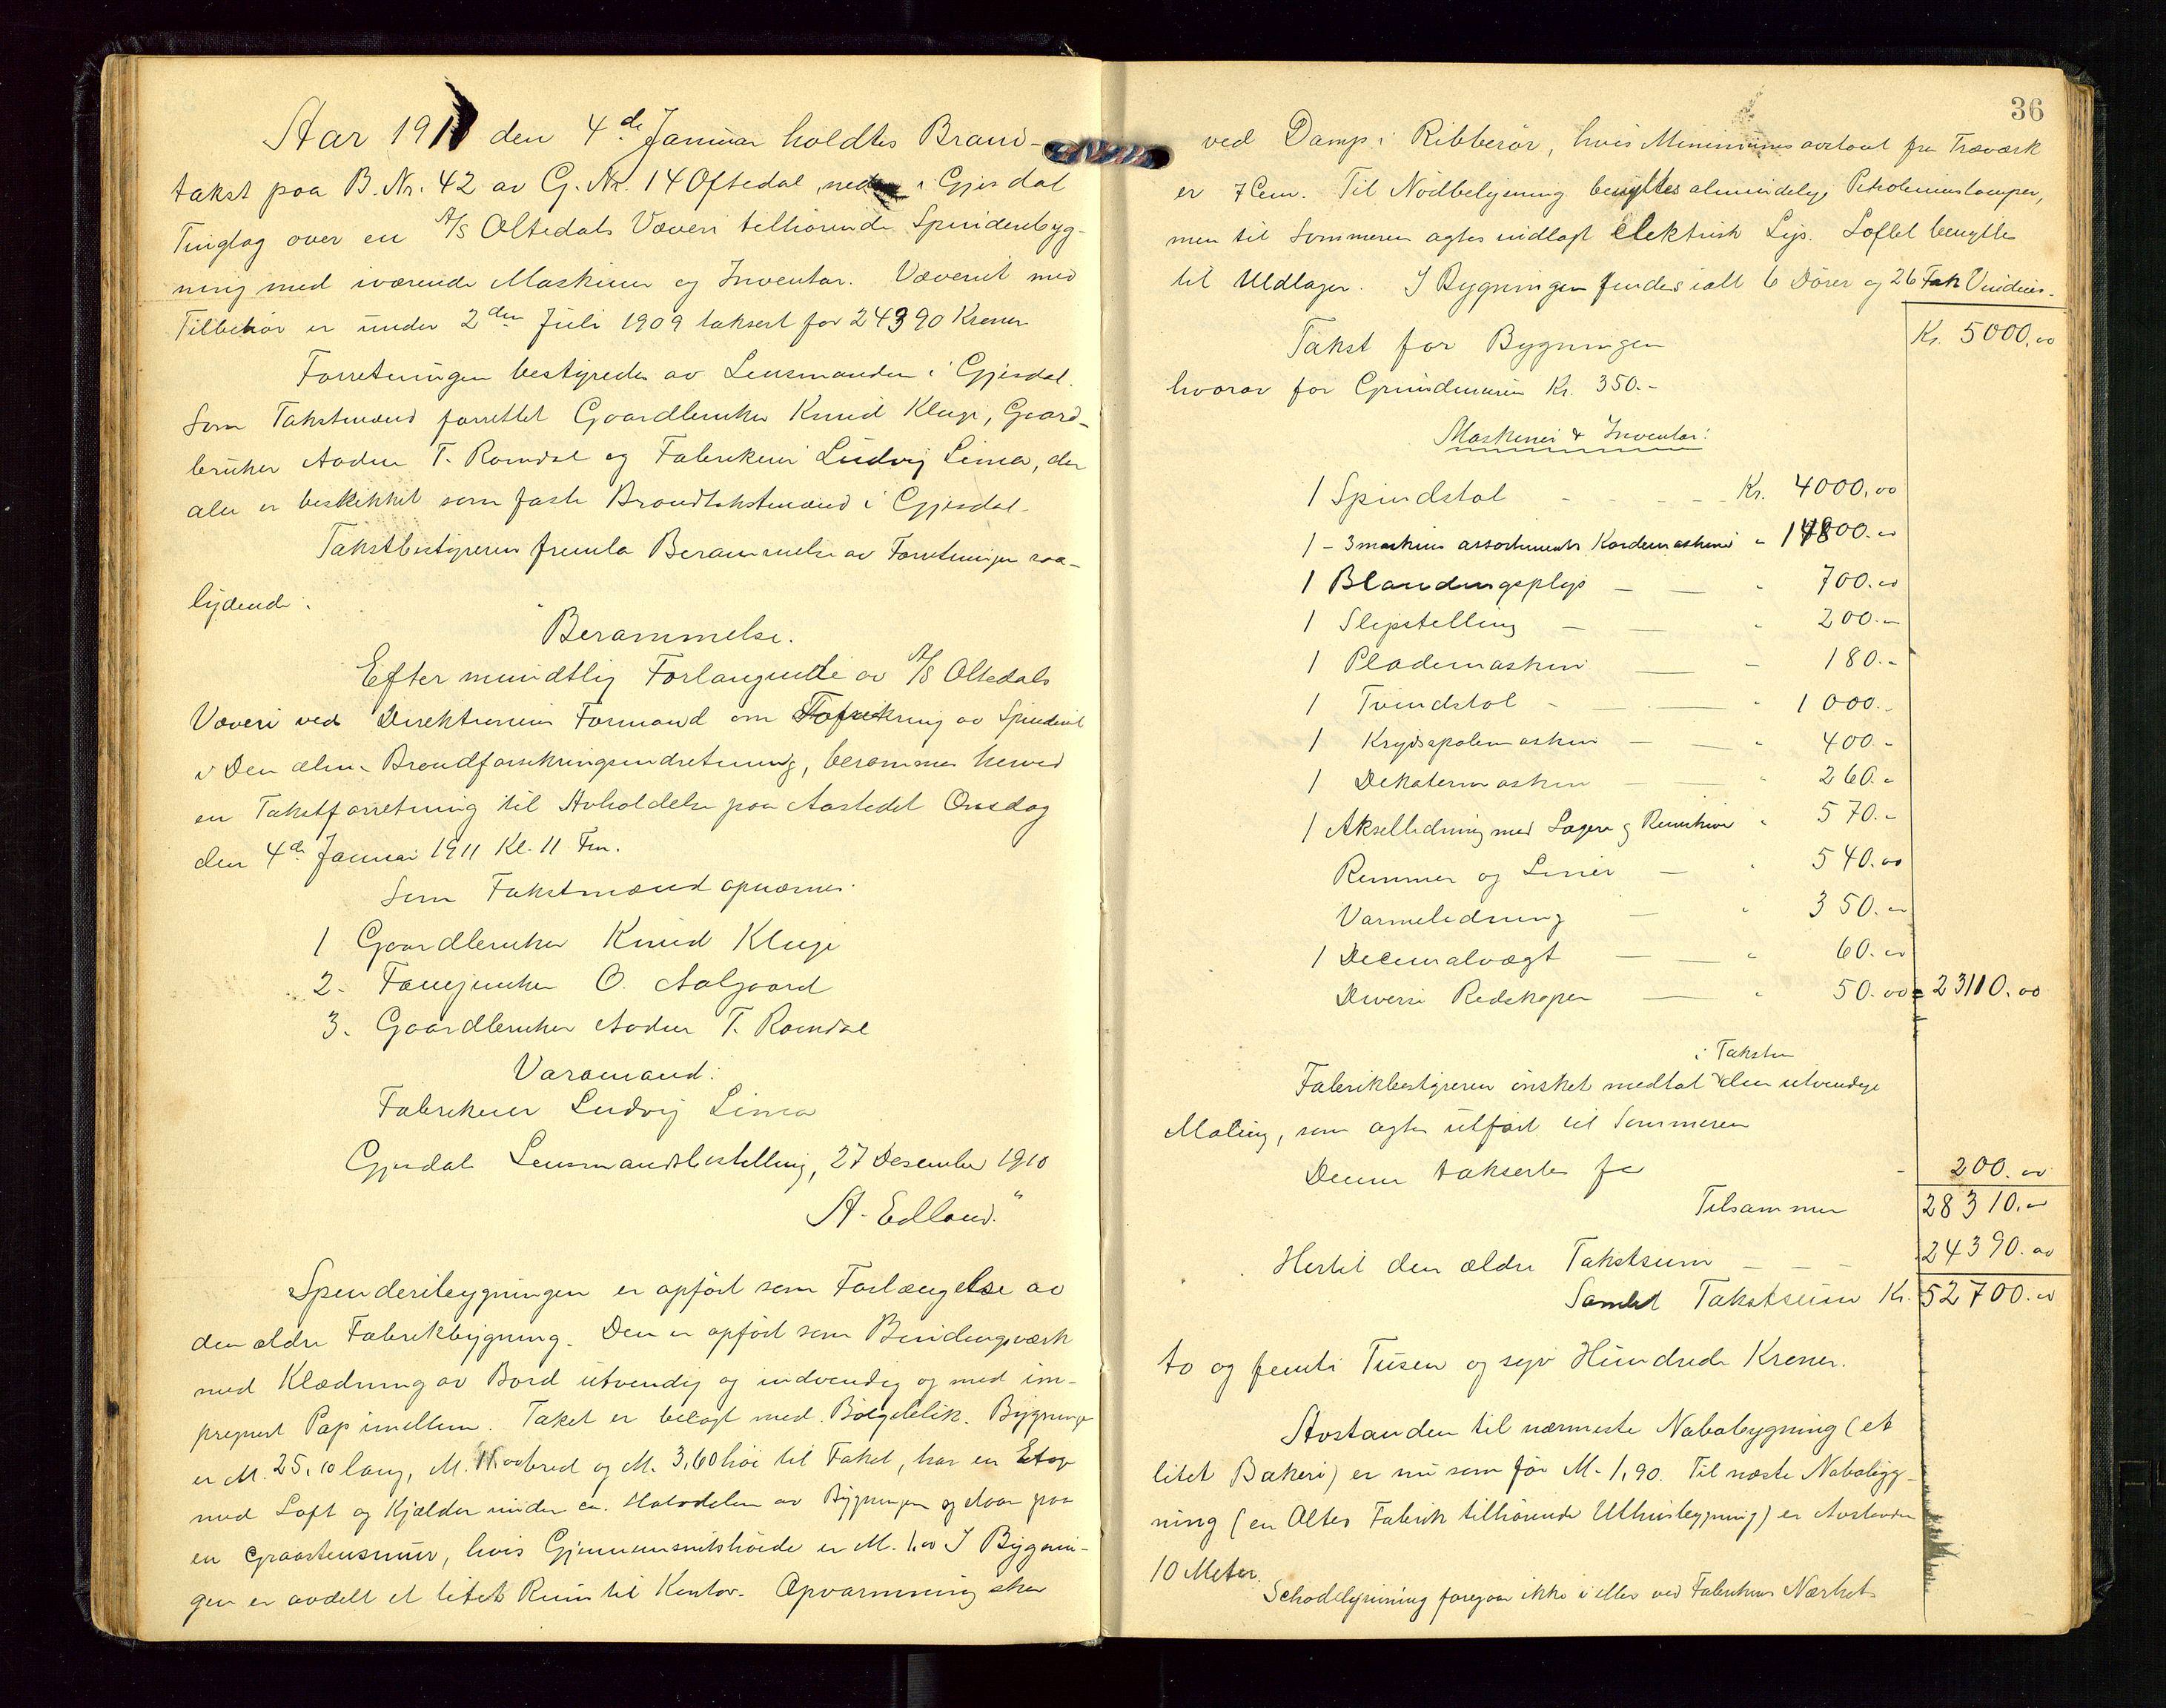 Aar 1911 den 4de Januar holdtes Brand-
takst paa B. Nr. 42 av G. Nr. 14 Oftedal nedre i Gjesdal
Tinglag over en A/S Oltedals Væveri tilhørende Spinderibyg-
ning med iværende Maskiner og Inventar. Væveriet med
Tilbehør er under 2den Juli 1909 taksert for 24390 Kroner
Forretningen bestyredes av Lensmanden i Gjesdal.
Som Takstmænd forrettet Gaardbruker Knud Kluge, Gaard-
bruker Aadne T. Ramdal og Fabrikeier Ludvig Lima, der
alle er beskikket som faste Brandtakstmænd i Gjesdal.
Takstbestyreren fremla Berammelse av Forretningen saa-
lydende:
"Berammelse.
Efter mundtlig Forlangende av A/S Oltedals
Væveri ved Direktionens Formand om Forsikring av Spinderiet
i Den alm. Brandforsikringsindretning, berammes herved
en Takstforretning til Avholdelse paa Aastedet Onsdag
den 4de Januar 1911 Kl. 11 Fm.
Som Takstmænd opnævnes:
1 Gaardbruker Knud Kluge
2. Fanejunker O. Aalgaard
3. Gaardbruker Aadne T. Ramdal
Varamand:
Fabrikeier Ludvig Lima
Gjesdal Lensmandsbestilling, 27 Desember 1910
A. Edland."
Spinderibygningen er opført som Forlængelse av
den ældre Fabrikbygning. Den er opført som Bindingsværk
med Klædning av Bord utvendig og indvendig og med im-
pregnert Pap imellem. Taket er belagt med Bølgeblik. Bygningen
er M. 25,10 lang, M. 11,00 bred og M. 3,60 høi til Taket, har en Etage
med Loft og Kjælder under ca. Halvdelen av Bygningen og staar paa
en Graastensmur, hvis Gjennemsnitshøide er M. 1,00 I Bygnin-
gen er avdelt et litet Rum til Kontor. Opvarmning sker
36
ved Damp i Ribberør, hvis Minimumsavstand fra Træværk
er 7 Cem. Til Nødbelysning benyttes almindelige Petroleumslamper,
men til Sommeren agtes indlagt elektrisk Lys. Loftet benyttes
til Uldlager. I Bygningen findes ialt 6 Dører og 26 Fak Vinduer.
Takst for Bygningen Kr. 5000,00
hvorav for Grundmuren Kr. 350.-
Maskiner & Inventar:
1 Spindstol - - - - Kr. 4000,00
1 - 3 maskins assortiments Kardemaskine " 14800.00
1 Blandingsplys — — " 700.00
1 Slipstelling — — " 200.00
1 Plademaskin — - 180.-
1 Tvindstol - — " 1000.-
1 Krydsspolemaskin — — " 400.-
1 Dekatermaskin — — " 260.-
1 Akselledning med Lagere og Remskiver " 570.-
Remmer og Liner — " 540.00
Varmeledning — " 350.00
1 Decimalvægt — — " 60.00
Diverse Redskaper — " 50.00 = 23110.00
i Taksten
Fabrikbestyreren ønsket medtat den utvendige
Maling, som agtes utført til Sommeren
Denne taksertes for - 200.00
Tilsammen 28310.00
Hertil den ældre Takstsum - - - 24390.00
Samlet Takstsum Kr. 52700.00
to og femti Tusen og syv Hundrede Kroner.
Avstanden til nærmeste Nabobygning (et
litet Bakeri) er nu som før M. 1,90. Til næste Nabobyg-
ning (en Altes Fabrik tilhørende Uthusbygning) er Avstanden
10 Meter.
Schoddylysning foregaar ikke i eller ved Fabrikens Nærhet.